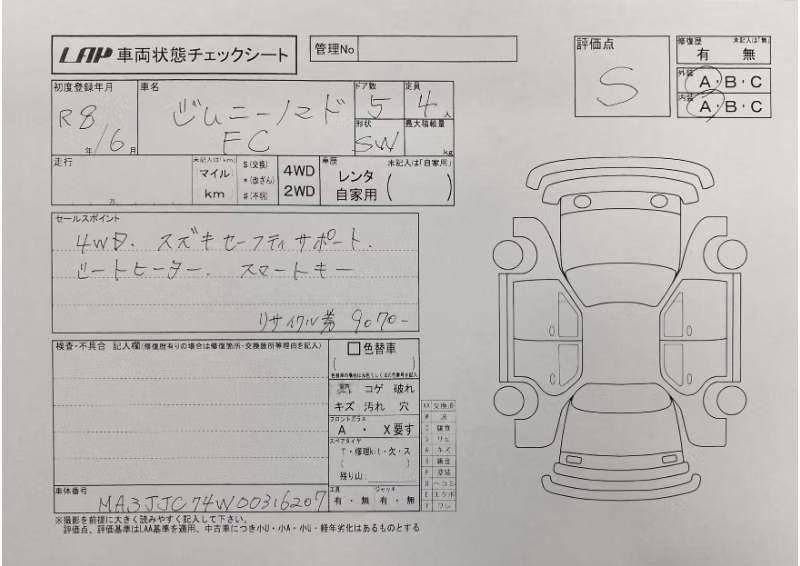 LAP 車両状態チェックシート
管理No
評価点
S
修復歴 未記入は「無」
有 無
外装
A・B・C
内装
A・B・C
初度登録年月
R8
年 /6月
車名
ジムニーノマド
FC
ドア数
5
定員
4人
形状
SW
最大積載量
kg
走行
万
未記入は(km)
マイル
km
$(交換)
*(改ざん)
#(不明)
4WD
2WD
車歴 未記入は「自家用」
レンタ
自家用
( )
セールスポイント
4WD. スズキセーフティサポート.
シートヒーター. スマートキー
リサイクル券 9070-
検査・不具合 記入欄(修復歴有りの場合は修復箇所・交換箇所等理由を記入)
色替車
( )
コゲ 破れ
キズ 汚れ 穴
フロントガラス
A ・ X要す
スペアタイヤ
T・修理kit・欠・ス
( )
残り山
工具
有・無
ジャッキ
有・無
車体番号
MA3JJC74W00316207
※撮影を前提に大きく読みやすく記入して下さい。
評価点、評価基準はLAA基準を適用、中古車につき小U・小A・小U・軽年劣化はあるものとする